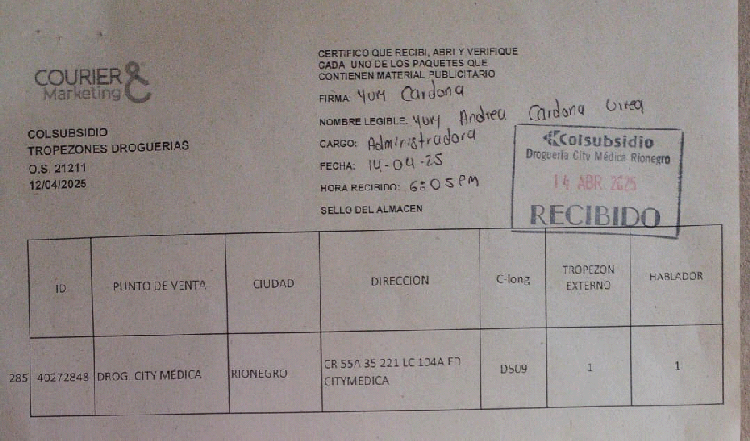 COURIER &
Marketing
COLSUBSIDIO
TROPEZONES DROGUERIAS
O.S. 21211
12/04/2025
CERTIFICO QUE RECIBI, ABRI Y VERIFIQUE
CADA UNO DE LOS PAQUETES QUE
CONTIENEN MATERIAL PUBLICITARIO
FIRMA: Yury Cardona
NOMBRE LEGIBLE: Yury Andrea Cardona
CARGO: Administradora
FECHA: 14-04-25
HORA RECIBIDO: 6:05PM
SELLO DEL ALMACEN
Colsubsidio
Droguería City Médica Rionegro
14 ABR. 2025
RECIBIDO
ID PUNTO DE VENTA CIUDAD DIRECCION C-long TROPEZON EXTERNO HABLADOR
285 40272848 DROG CITY MEDICA RIONEGRO CR 55A 35 221 LC 104A CITYMEDICA D509 1 1